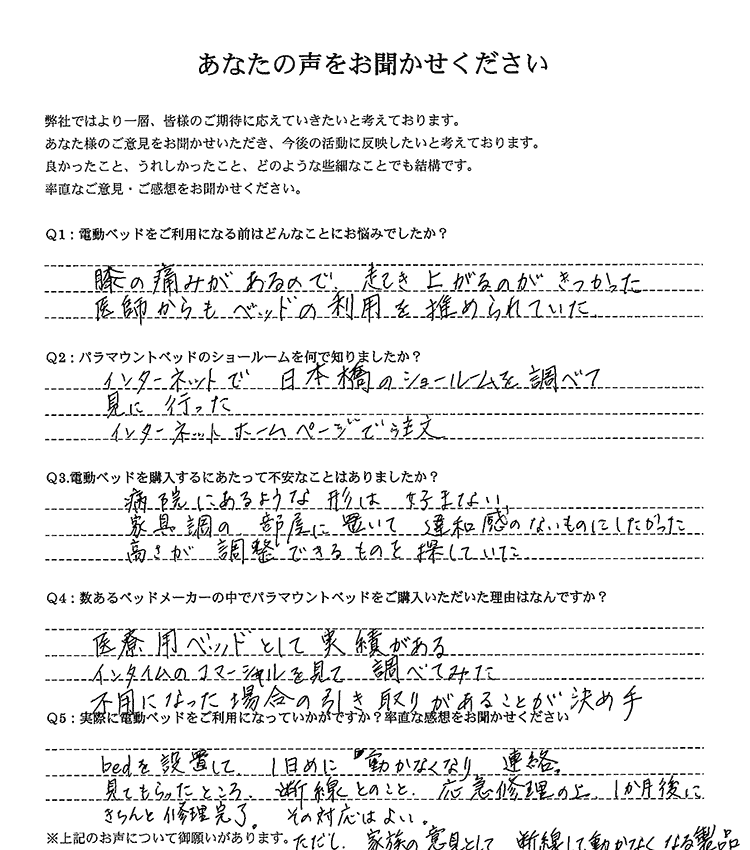 あなたの声をお聞かせください
弊社ではより一層、皆様のご期待に応えていきたいと考えております。
あなた様のご意見をお聞かせいただき、今後の活動に反映したいと考えております。
良かったこと、うれしかったこと、どのような些細なことでも結構です。
率直なご意見・ご感想をお聞かせください。
Q1：電動ベッドをご利用になる前はどんなことにお悩みでしたか？
膝の痛みがあるので、起き上がるのがきつかった
医師からもベッドの利用を推められていた。
Q2：パラマウントベッドのショールームを何で知りましたか？
インターネットで 日本橋のショールームを調べて
見に行った
インターネットホームページで注文
Q3.電動ベッドを購入するにあたって不安なことはありましたか？
病院にあるような形は好まない
家具調の部屋に置いて違和感のないものにしたかった
高さが調整できるものを探していた
Q4：数あるベッドメーカーの中でパラマウントベッドをご購入いただいた理由はなんですか？
医療用ベッドとして実績がある
インタイムのコマーシャルを見て調べてみた
不用になった場合の引き取りがあることが決め手
Q5：実際に電動ベッドをご利用になっていかがですか？率直な感想をお聞かせください
bedを設置して、1日めに動かなくなり連絡。
見てもらったところ、断線とのこと、応急修理の上、1か月後に
きちんと修理完了。その対応はよい。
※上記のお声について御願いがあります。ただし、家族の意見として断線して動かなくなる製品